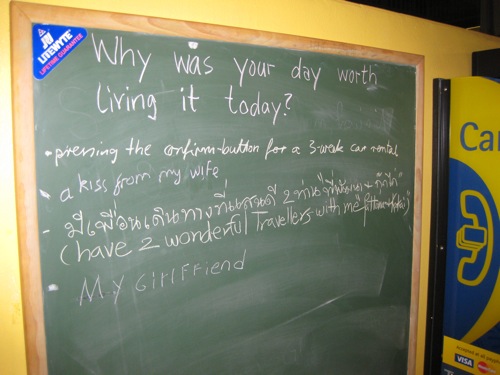 LITEWYTE
LIFETIME GUARANTEE
Why was your day worth
living it today?
• pressing the confirm-button for a 3-week car rental
- a kiss from my wife
- มีเพื่อนเดินทางที่แสนดี 2 ท่าน
(have 2 wonderful Travellers with me
- MY GIRLFFiEND
VISA